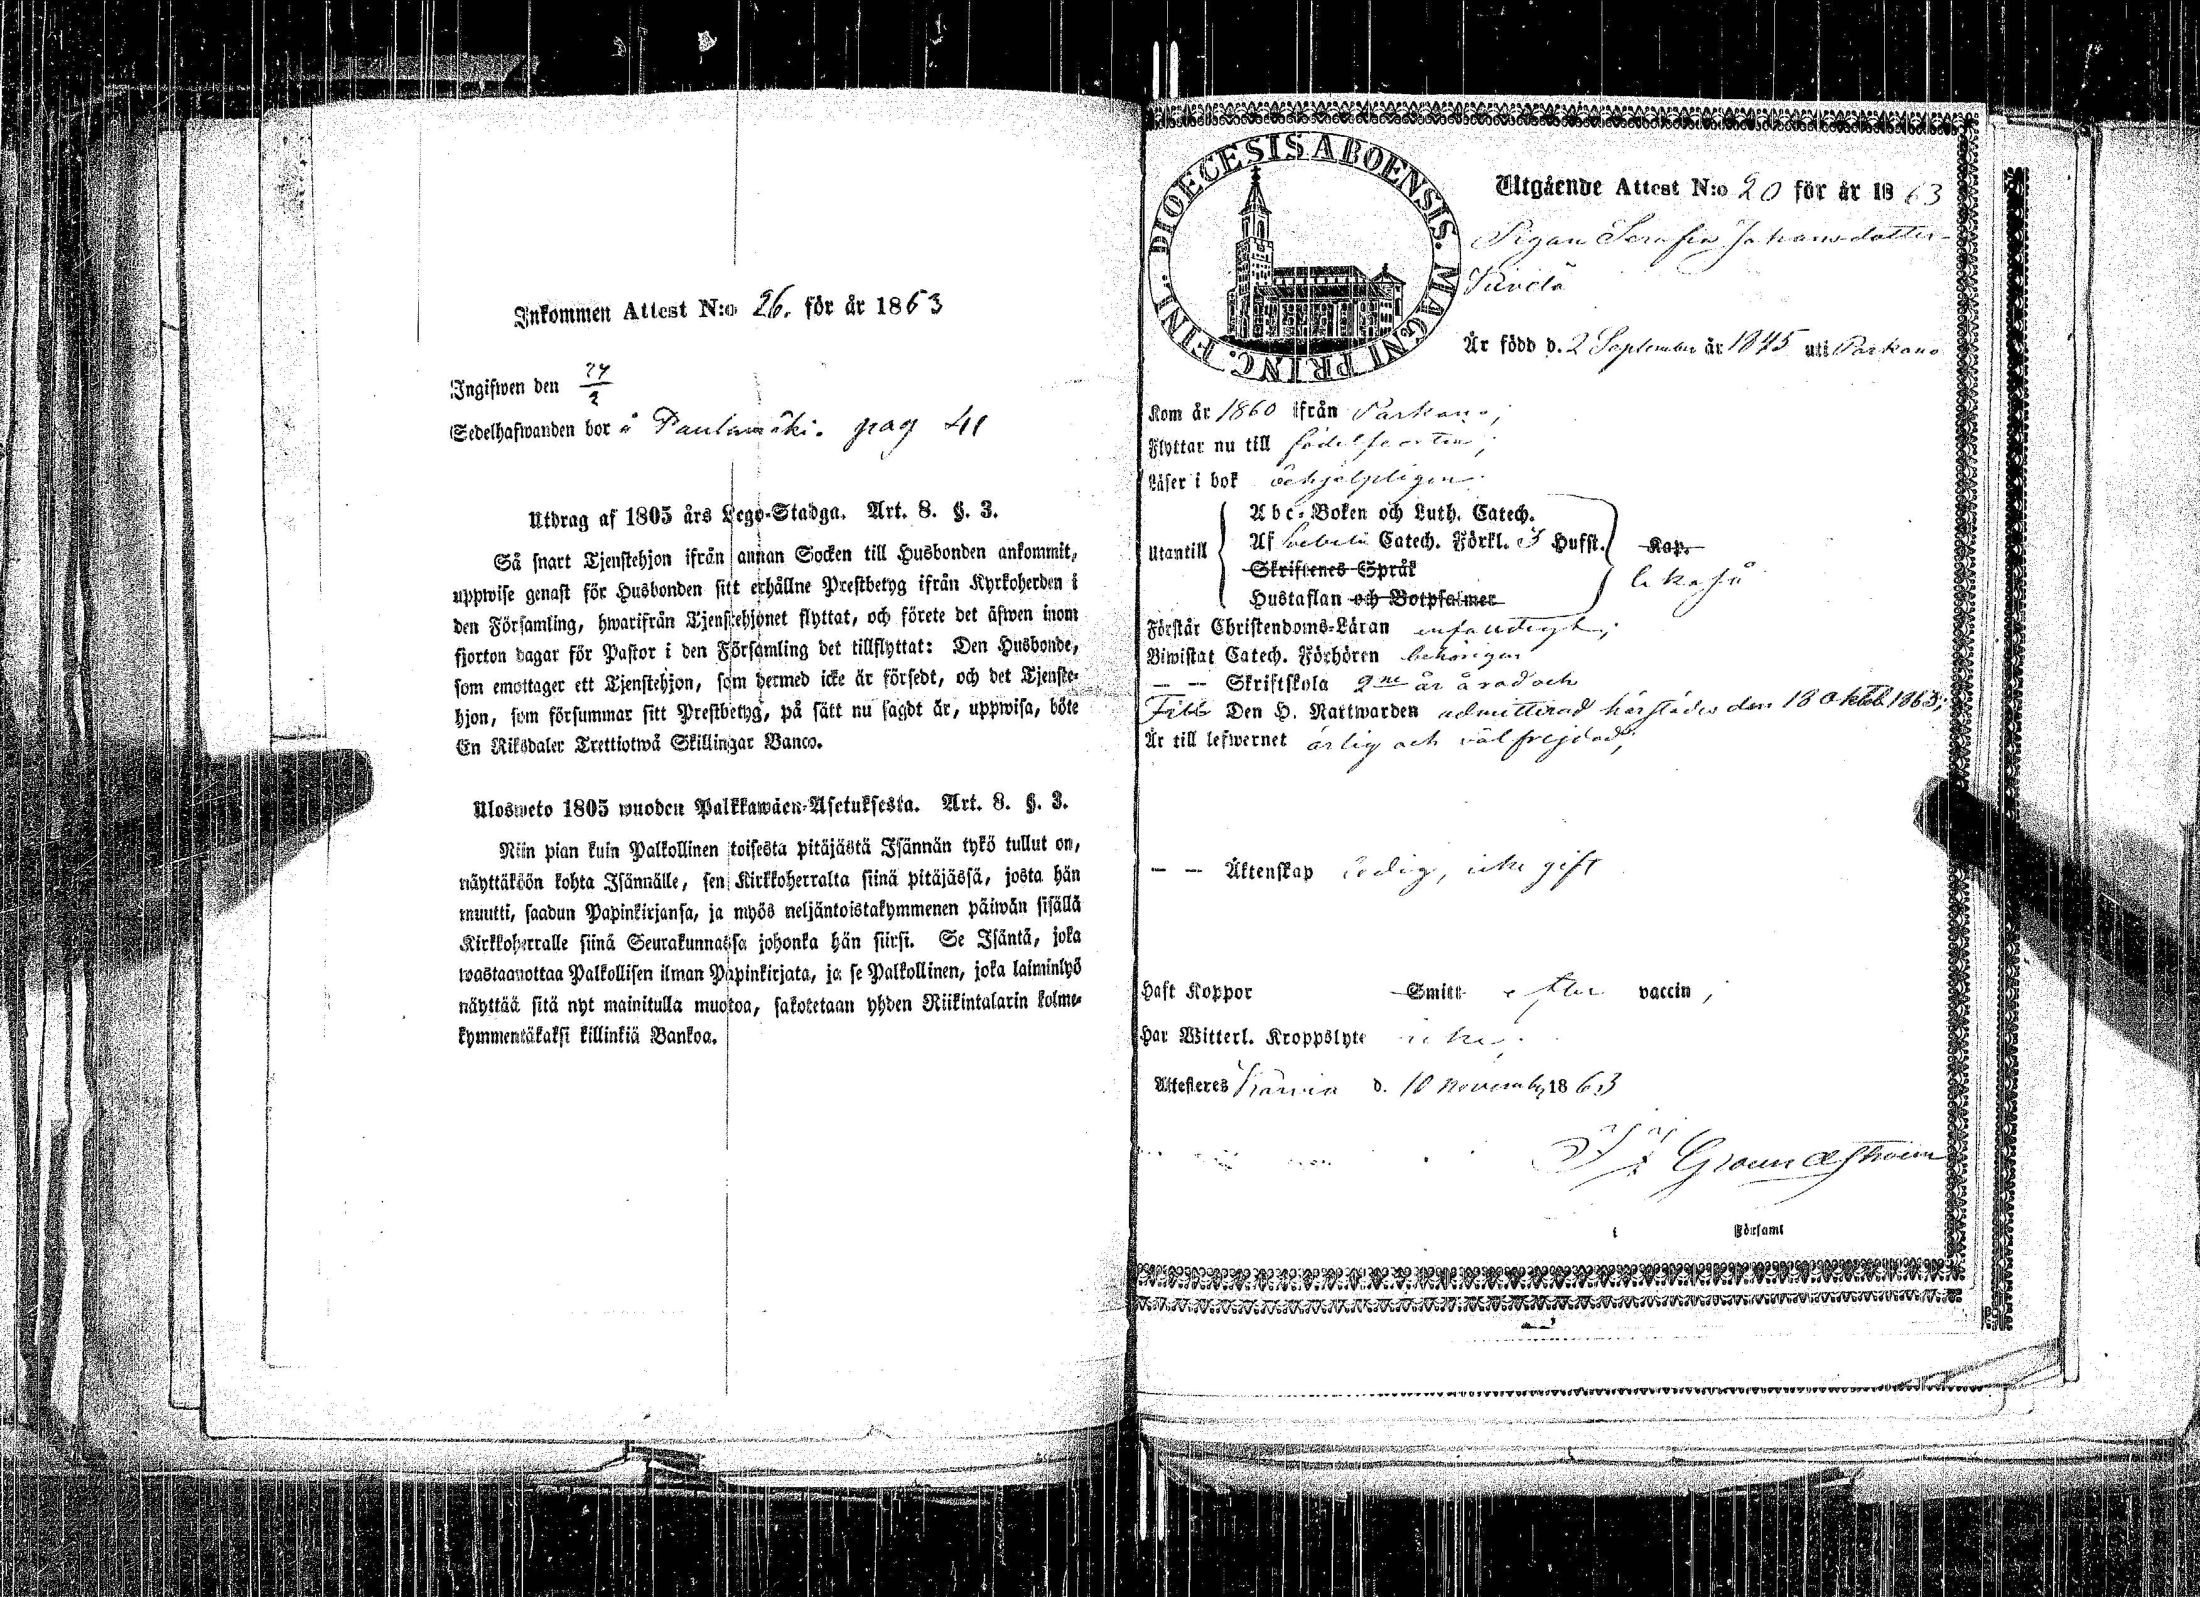 Inkommen Attest N:o 26. för år 1863
Ingifwen den 27/2
Sedelhafwanden bor å Paulamäki. pag 41
Utdrag af 1805 års Lego-Stadga. Art. 8. §. 3.
Så snart Tjenstehjon ifrån annan Socken till Husbonden ankommit,
uppwise genast för Husbonden sitt erhållne Prestbetyg ifrån Kyrkoherden i
den Församling, hwarifrån Tjenstehjonet flyttat, och förete det äfwen inom
fjorton dagar för Pastor i den Församling det tillflyttat: Den Husbonde,
som emottager ett Tjenstehjon, som hermed icke är försedt, och det Tjenste-
hjon, som försummar sitt Prestbetyg, på sätt nu sagdt är, uppwisa, böte
En Riksdaler Trettiotwå Skillingar Banco.
Ulosweto 1805 wuoden Palkkawäen-Asetuksesta. Art. 8. §. 3.
Niin pian kuin Palkollinen toisesta pitäjästä Isännän tykö tullut on,
näyttäköön kohta Isännälle, sen Kirkkoherralta siinä pitäjässä, josta hän
muutti, saadun Papinkirjansa, ja myös neljäntoistakymmenen päiwän sisällä
Kirkkoherralle siinä Seurakunnassa johonka hän siirsi. Se Isäntä, joka
wastaanottaa Palkollisen ilman Papinkirjata, ja se Palkollinen, joka laiminlyö
näyttää sitä nyt mainitulla muotoa, sakotetaan yhden Riikintalarin kolme-
kymmentäkaksi killinkiä Bankoa.
DIOECESIS ABOENSIS. MAGNI PRINC. FINL.
Utgående Attest N:o 20 för år 1863
Pigan Serafia Johansdotter
Är född d. 2 September år 1845 uti Parkano
Kom år 1860 ifrån Parkano;
Flyttar nu till födelseorten;
Läser i bok öchjelpligen.
Utantill
Abc-Boken och Luth. Catech.
Af Svebelii Catech. Förkl. 3 Hufst. Kap.
Skriftenes Språk
likaså
Hustaflan och Botpsalmer
Förstår Christendoms-Läran enfaldigt;
Biwistat Catech. Förhören behörigen
— — Skriftskola 2ne år å rad och
Till Den H. Nattwarden admitterad härstädes den 18 Oktob. 1863;
Är till lefwernet ärlig och väl frejdad;
— — Äktenskap ledig, icke gift
Haft Koppor Smitt efter vaccin;
Har Witterl. Kroppslyte icke.
Attesteres Karvia d. 10 November 1863
i Församl